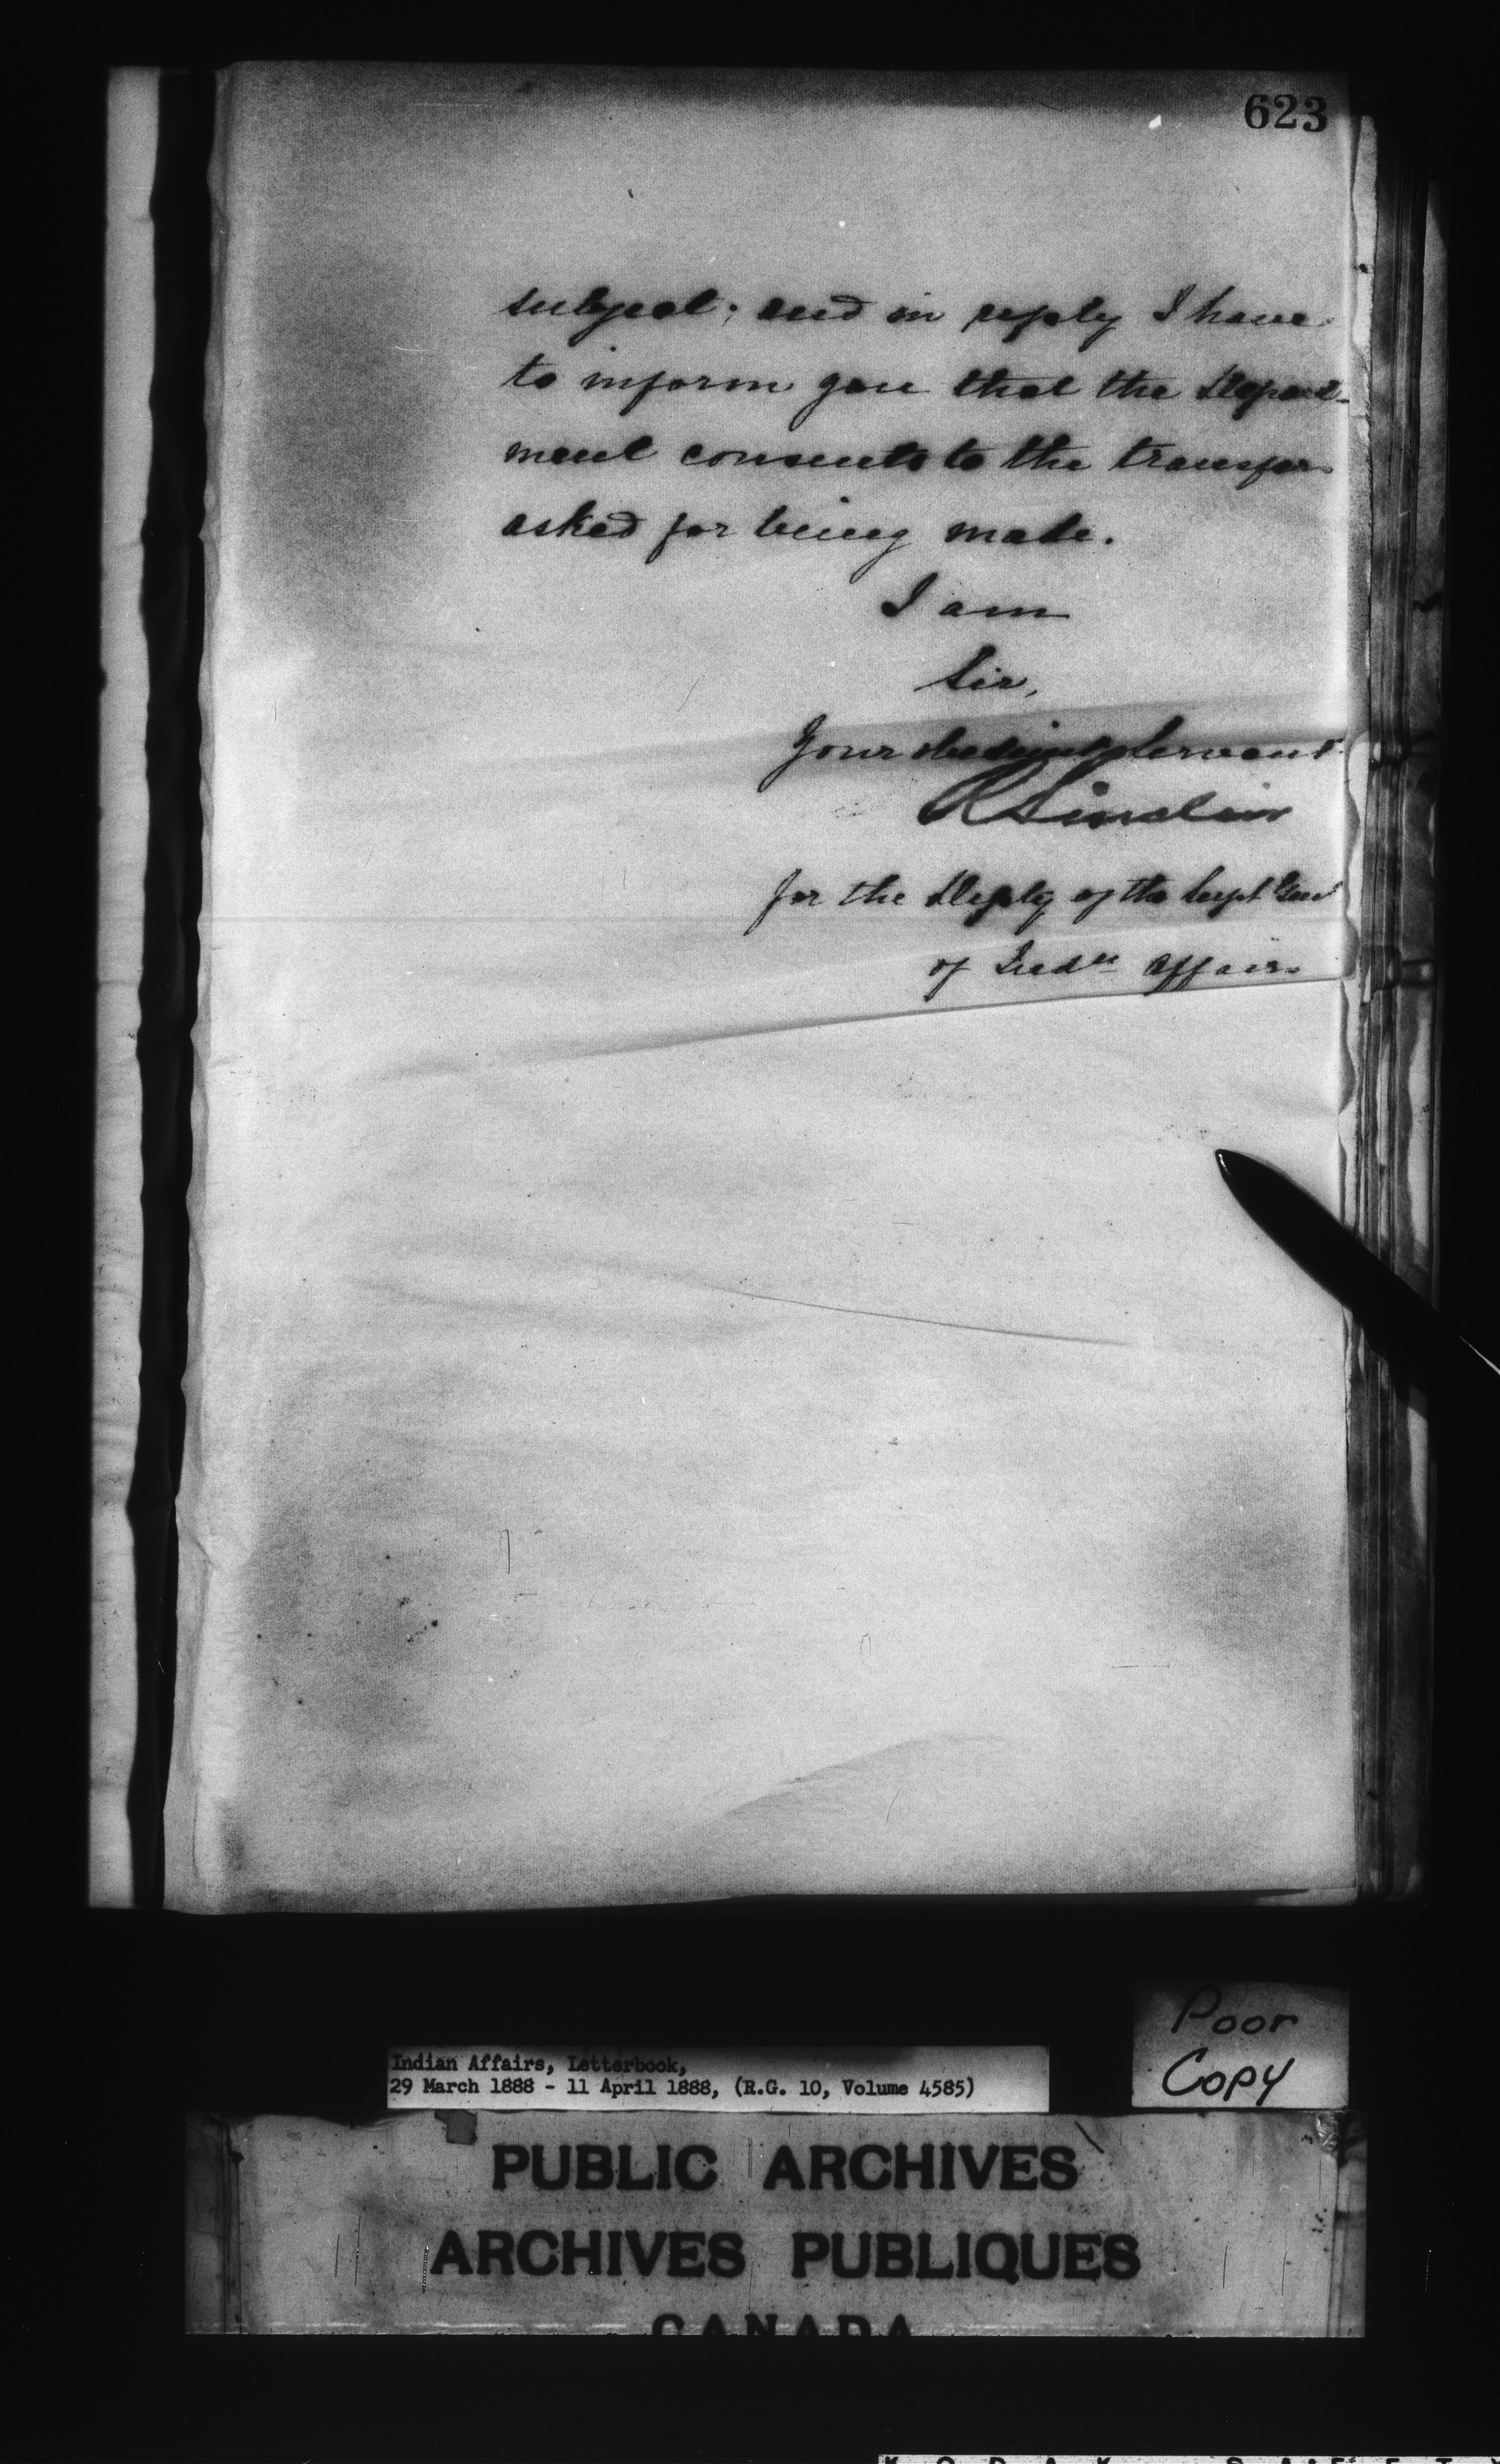 623
subject; and in reply I have
to inform you that the Depart-
ment consents to the transfer
asked for being made.
I am
Sir,
Your obedient Servant
R Sinclair
for the Deputy of the Supt Genl
of Indn Affairs
Poor
Copy
Indian Affairs, Letterbook,
29 March 1888 - 11 April 1888, (R.G. 10, Volume 4585)
PUBLIC ARCHIVES
ARCHIVES PUBLIQUES
CANADA